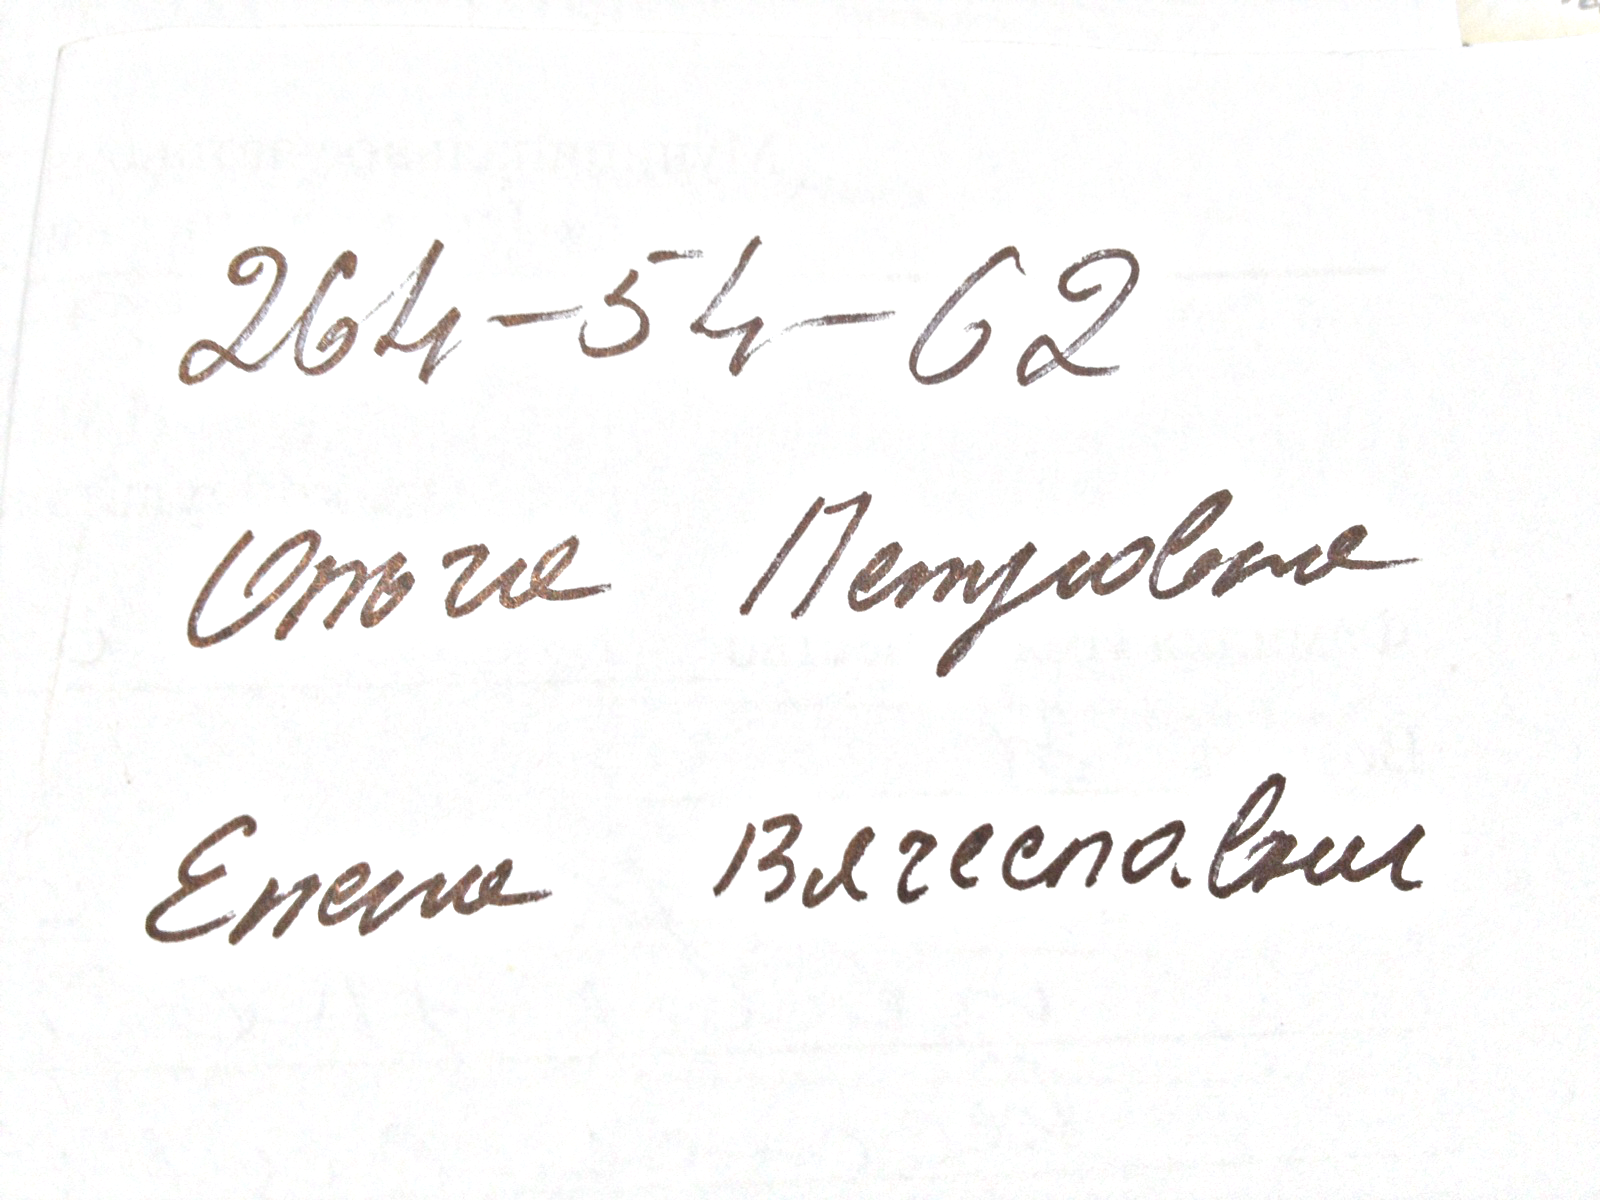 264-54-62
Ольга Петровна
Елена Вячеславна